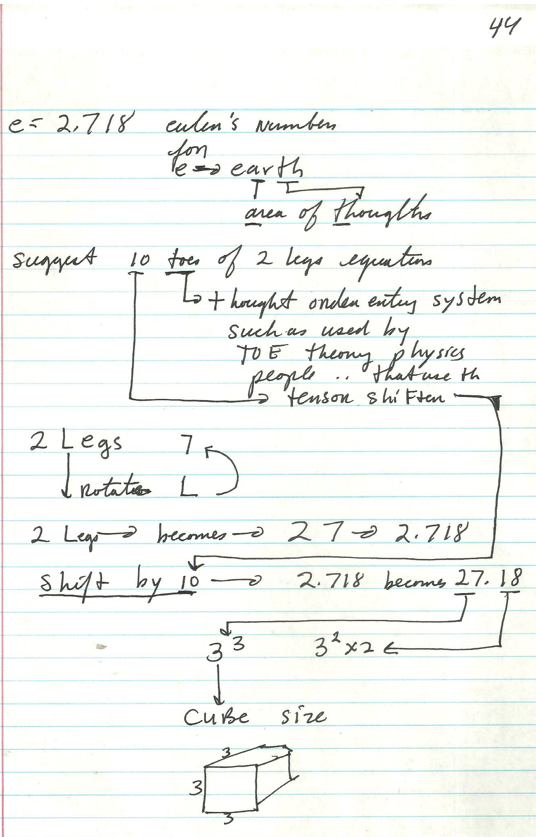 44
e = 2.718 eulen's numben
fon
e → earth
area of thoughts
suggest 10 toes of 2 legs equation
thought onden entry system
such as used by
TOE theony physics
people .. that use th
tenson shiften
2 Legs 7
notate L
2 Legs → becomes → 27 → 2.718
shift by 10 → 2.718 becomes 27.18
3³ 3² x 2
CUBE size
3
3
3